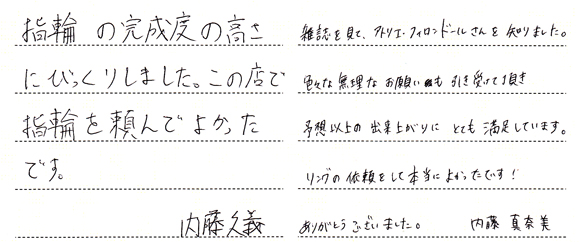 指輪の完成度の高さ
にびっくりしました。この店で
指輪を頼んでよかった
です。
内藤久義
雑誌を見て、アトリエ・フィロンドールさんを知りました。
色々な無理なお願いも引き受けて頂き
予想以上の出来上がりにとても満足しています。
リングの依頼をして本当によかったです！
ありがとうございました。 内藤 真奈美